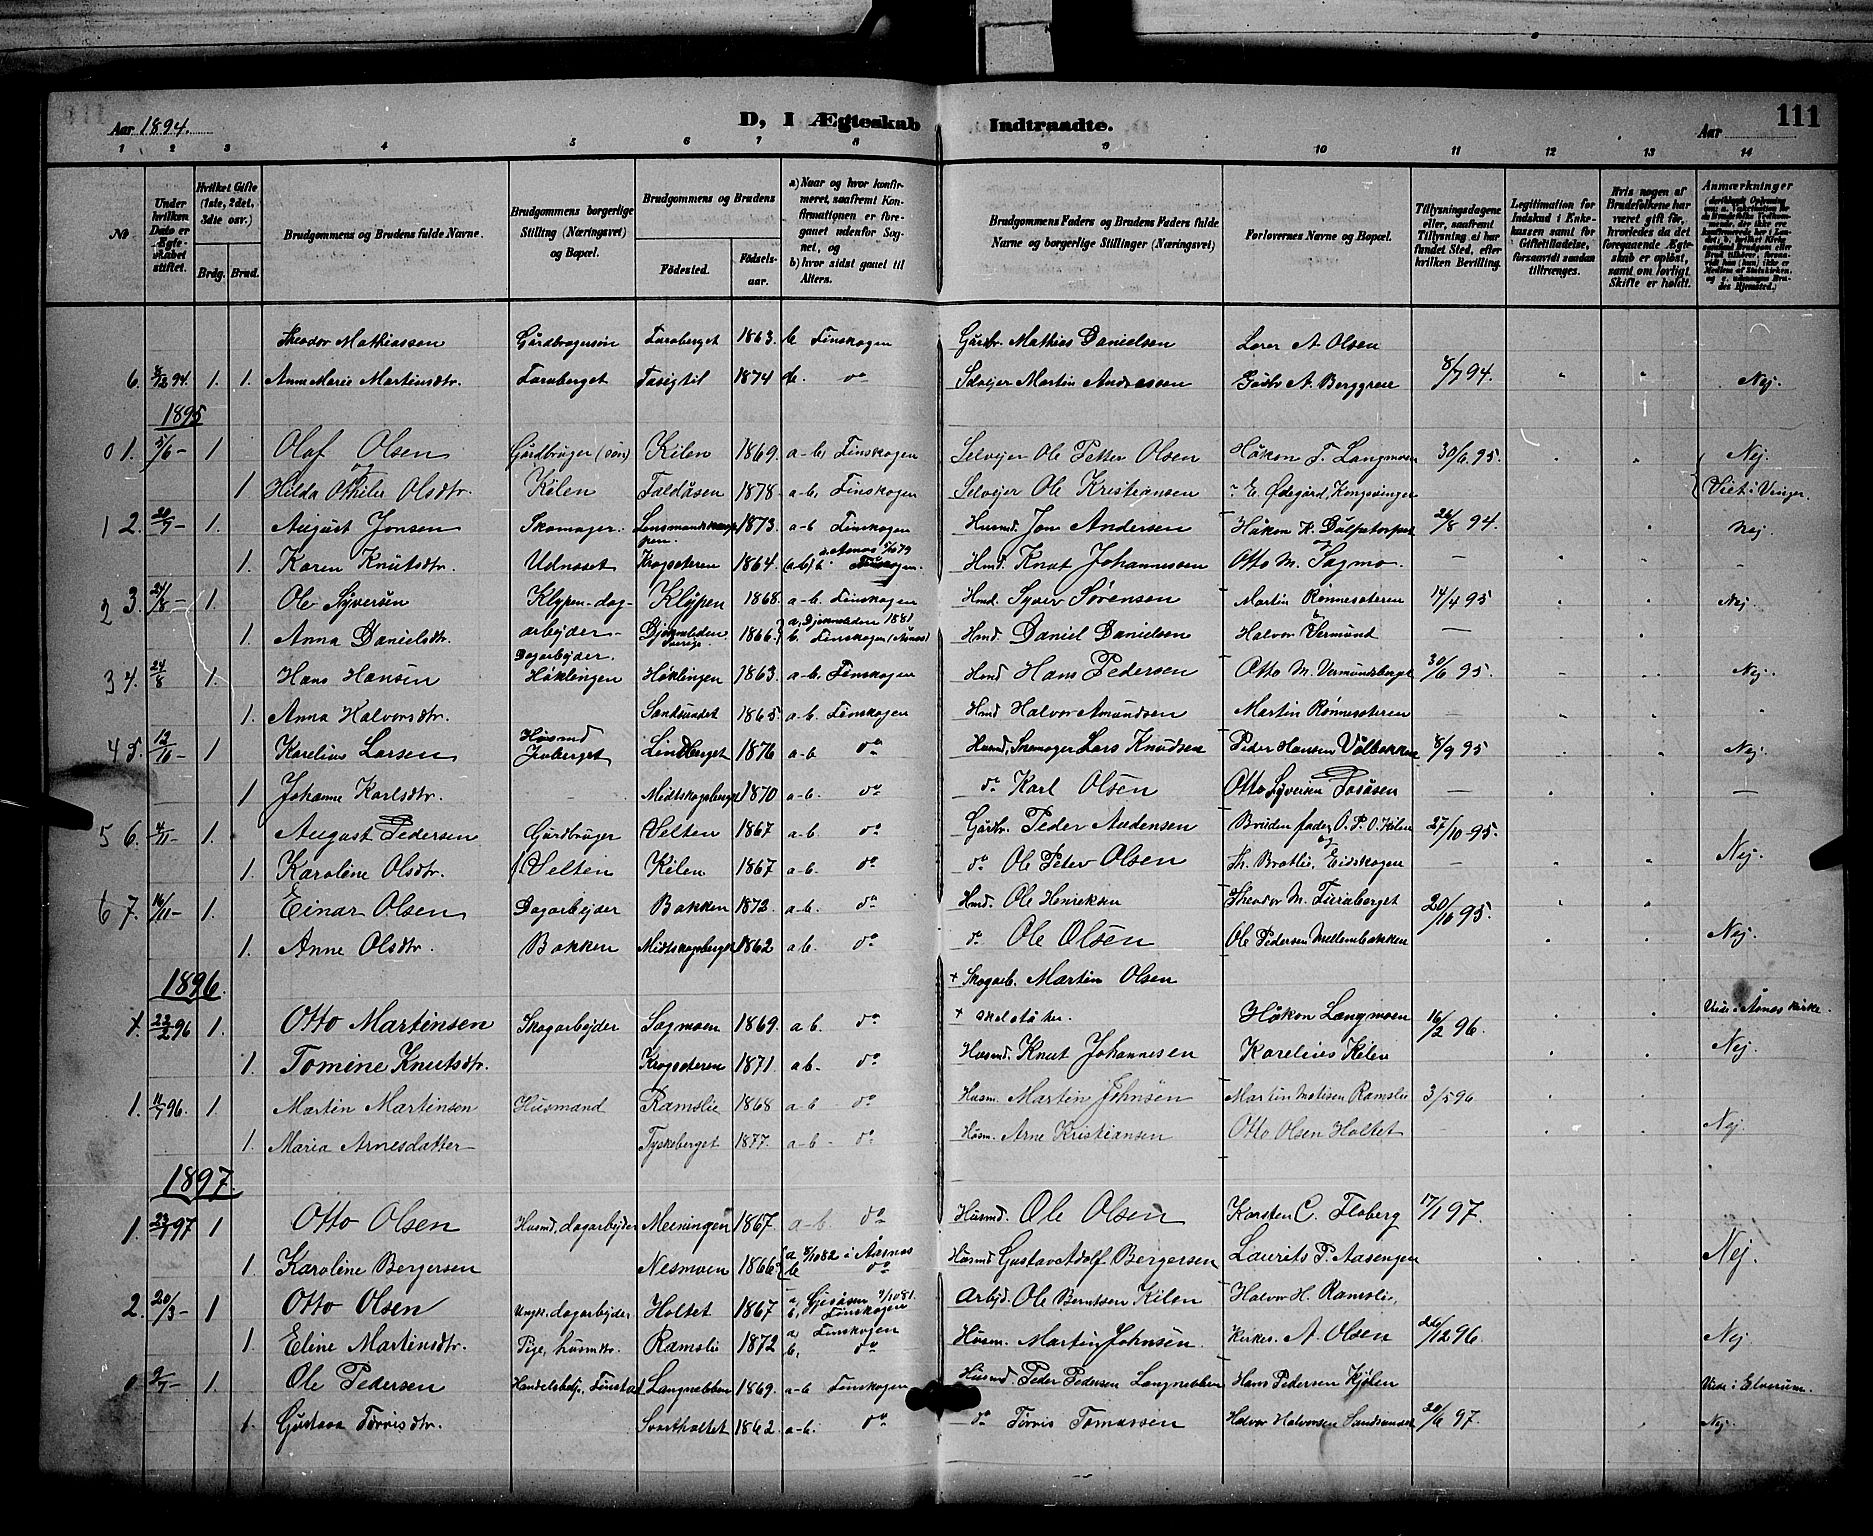 Aar 1894. D, I Ægteskab Indtraadte. Aar 111
1 2 3 4 5 6 7 8 9 10 11 12 13 14
No
Under hvilken Dato er Ægteskabet stiftet.
Hvilket Gifte (1ste, 2det, 3die osv.)
Brdg. Brud.
Brudgommens og Brudens fulde Navne.
Brudgommens borgerlige Stilling (Næringsvei) og Bopæl.
Brudgommens og Brudens
Födested. Födselsaar.
a) Naar og hvor konfirmeret, saafremt Konfirmationen er foregaaet udenfor Sognet, og b) hvor sidst gaaet til Alters.
Brudgommens Faders og Brudens Faders fulde Navne og borgerlige Stillinger (Næringsvei)
Forlovernes Navne og Bopæl.
Tillysningsdagene eller, saafremt Tillysning ei har fundet Sted, efter hvilken Bevilling.
Legitimation for Indskud i Enkekassen samt for Giftetilladelse, forsaavidt saadan tiltrænges.
Hvis nogen af Brudefolkene har været gift för, hvorledes da det foregaaende Ægteskab er oplöst, samt om lovligt Skifte er holdt.
Anmærkninger
Theodor Mathiassen Gårdbrugersøn Furuberget 1863. b Finskogen Gårbr. Mathias Danielsen Lærer A. Olsen
6. 8/12 94. 1. 1. Anne Marie Martinsdtr. Furuberget 1874 b. do Selvejer Martin Andreassen Gårdbr A. Berggren 8/7 94. Nej.
1895
01. 5/6 - 1 Olaf Olsen Gårdbruger (søn) Kilen 1869. a-b. Finskogen Selvejer Ole Petter Olsen Håkon T. Langmoen 30/6 95. Nej
1 Hilda Othilie Olsdtr. Kilen Faldåsen 1878. a-b. Finskogen Selvejer Ole Kristiansen E. Ødegård, Kongsvinger Viet i Vinger
1 2. 1. August Jonsen Skomager. 1873. a-b Finskogen Husmd. Jon Andersen Håkon K. 26/8 94. Nej
1. Karen Knutsdtr. Udnæset Krogsæteren 1864. Hmd. Knut Johannessen Otto M. Sagmo -
2 3. 24/8 - 1. Ole Syversen Klypen - dag- Klypen 1868. a-b. Finskogen Hmd. Syver Sørensen Martin Rønnesæteren 14/4 95 Nej
1. Anna Danielsdtr. arbejder - 1866. b. Finskogen Hmd. Daniel Danielsen Halvor Vermund -
3 4. 24/8 1. Hans Hansen Dagarbejder. Høklingen Høklingen 1863. a-b. Finskogen Hmd Hans Pedersen Otto M. Vermundsberget 30/6 95. Nej.
1. Anna Halvorsdtr. Sandsundet 1865. a-b. Finskogen Hmd Halvor Amundsen Martin Rønnesæteren -
4 5. 12/10 - 1 Karelius Larsen Husmd Furuberget Lindberget 1876 a-b do Husmd. Skomager Lars Knudsen Peder Hansen Vålbakken 8/9 95 Nej
1 Johanne Karlsdtr. Midtskogsberget 1870 a-b. do do Karl Olsen Otto Syversen -
5 6. 4/11 - 1. August Pedersen Gårdbruger Velten 1867 a-b do Gårbr. Peder Andersen Brudens fader O. P. O. Kilen 27/10 95. Nej.
1. Karoline Olsdtr. Velten Kilen 1867 a-b. do do Ole Peter Olsen Th. Bratlie, Eidskogen -
6 7. 16/11 - 1. Einar Olsen Dagarbejder Bakken 1872. a-b. do Hmd. Ole Henriksen Theodor M. Furuberget 20/10 95. Nej.
1. Anne Olsdtr. Bakken Midtskogsberget 1862 a-b. do do Ole Olsen Ole Pedersen Mellembakken
1896.
+ Skogarb. Martin Olsen
1. 23/2 96 1. Otto Martinsen Skogarbejder Sagmoen 1869. a b. do Håkon Langmoen 16/2 96. Viede i Åsnes kirke. Nej
1. Tomine Knutsdtr. Krogsæteren 1871. a b- do Husmd. Knut Johannesen Karelius Kilen
1. 96. 1. Martin Martinsen Husmand Ramslie 1868 a-b do Husm. Martin Johnsen Martin Matisen Ramslie 3/5 96 Nej.
1. Maria Arnesdatter Tyskeberget 1877. a-b - do Husm. Arne Kristiansen Otto Olsen Holtet -
1897.
1. 97 1 Otto Olsen Husmd. dagarbejder Meiningen 1867. a-b. do Husmd. Ole Olsen Karsten C. Floberg 17/1 97. Nej.
1. Karoline Bergersen Nesmoen 1866. a 8/10 82 i Åasnes b do Husmd Gustav Adolf Bergersen Laurits P. Aasengen
2. 20/3 - 1 Otto Olsen Ungk. dagarbejder Holtet 1867 a, Gjesåsen 9/10 81. b, Finskogen Arbjd. Ole Berntsen Kilen Halvor H. Ramslie, 26/12 96. Nej
1 Eline Martinsdtr. Pige, husmdtr. Ramslie 1872 a, Finskogen b, do Husm. Martin Johnsen. Kirkes. A. Olsen
0. 9/7 - 1. Ole Pedersen Handelsbetj., Finstad Langnebben 1869. a-b Finskogen Husmd. Peder Pedersen Langnebben Hans Pedersen Kjølen 20/6 97. Viede i Elverum.
1. Gustava Torrisdtr. Svartholtet 1862. a-b. do do Torris Tomassen Halvor Halvorsen Sandsundet Nej.